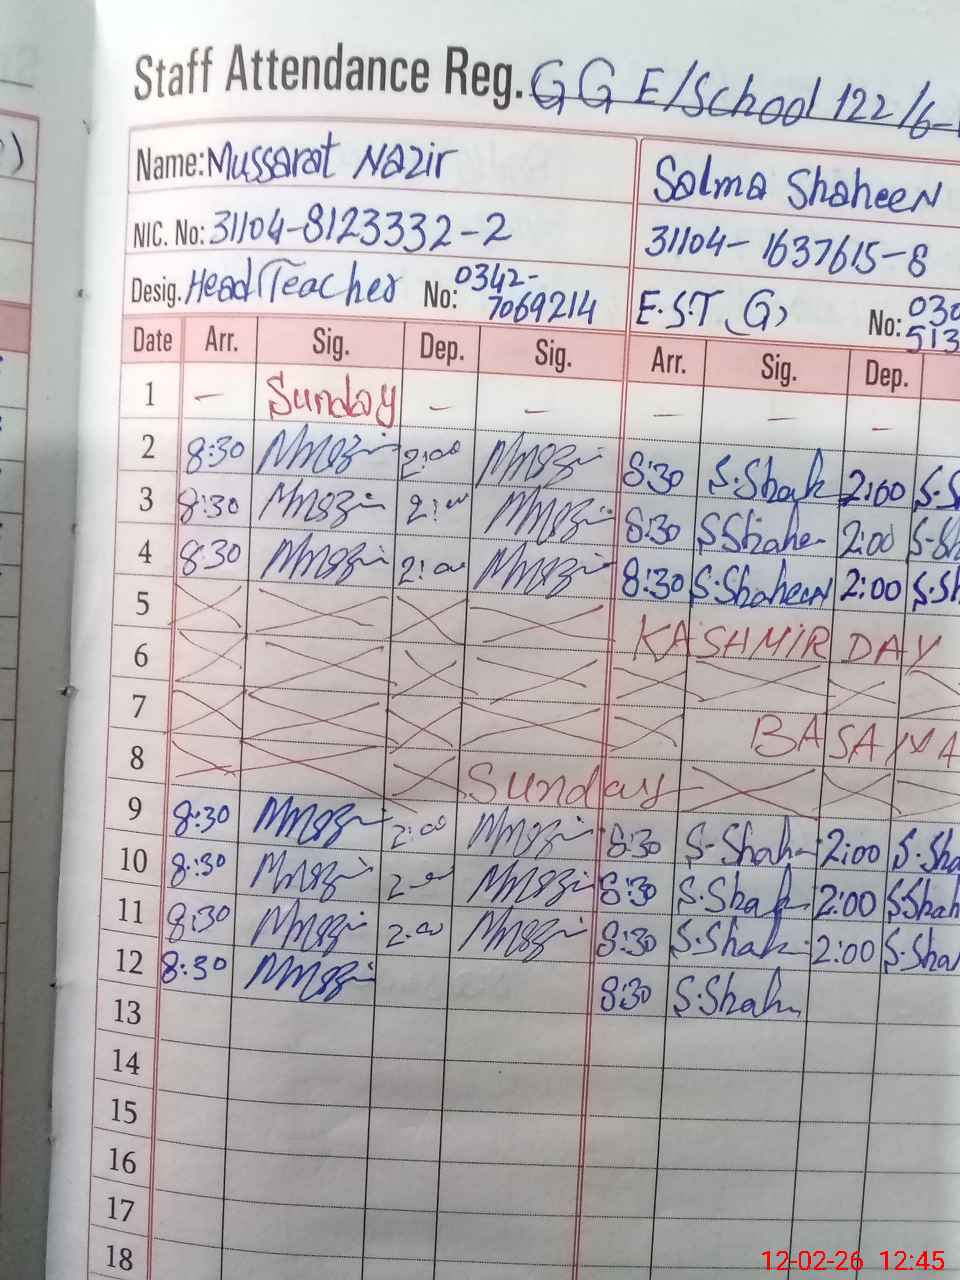 Staff Attendance Reg. GG E/School 122/6-
Name: Mussarat Nazir Salma Shaheen
NIC. No: 31104-8123332-2 31104-1637615-8
Desig. Head Teacher No: 0342-7069214 E.S.T (G) No: 030 513
Date Arr. Sig. Dep. Sig. Arr. Sig. Dep.
1 – Sunday – – – – –
2 8:30 2:00 8:30 S.Shah 2:00 S.S
3 8:30 2:00 8:30 S.Shahe 2:00 S-Sh
4 8:30 2:00 8:30 S.Shaheen 2:00 S.Sh
5 KASHMIR DAY
6
7 BASANA
8 Sunday
9 8:30 2:00 8:30 S-Shah 2:00 S.Sha
10 8:30 2:00 8:30 S.Shah 2:00 S.Shah
11 8:30 2:00 8:30 S.Shah 2:00 S.Sha
12 8:30 8:30 S.Shah
13
14
15
16
17
18
12-02-26 12:45